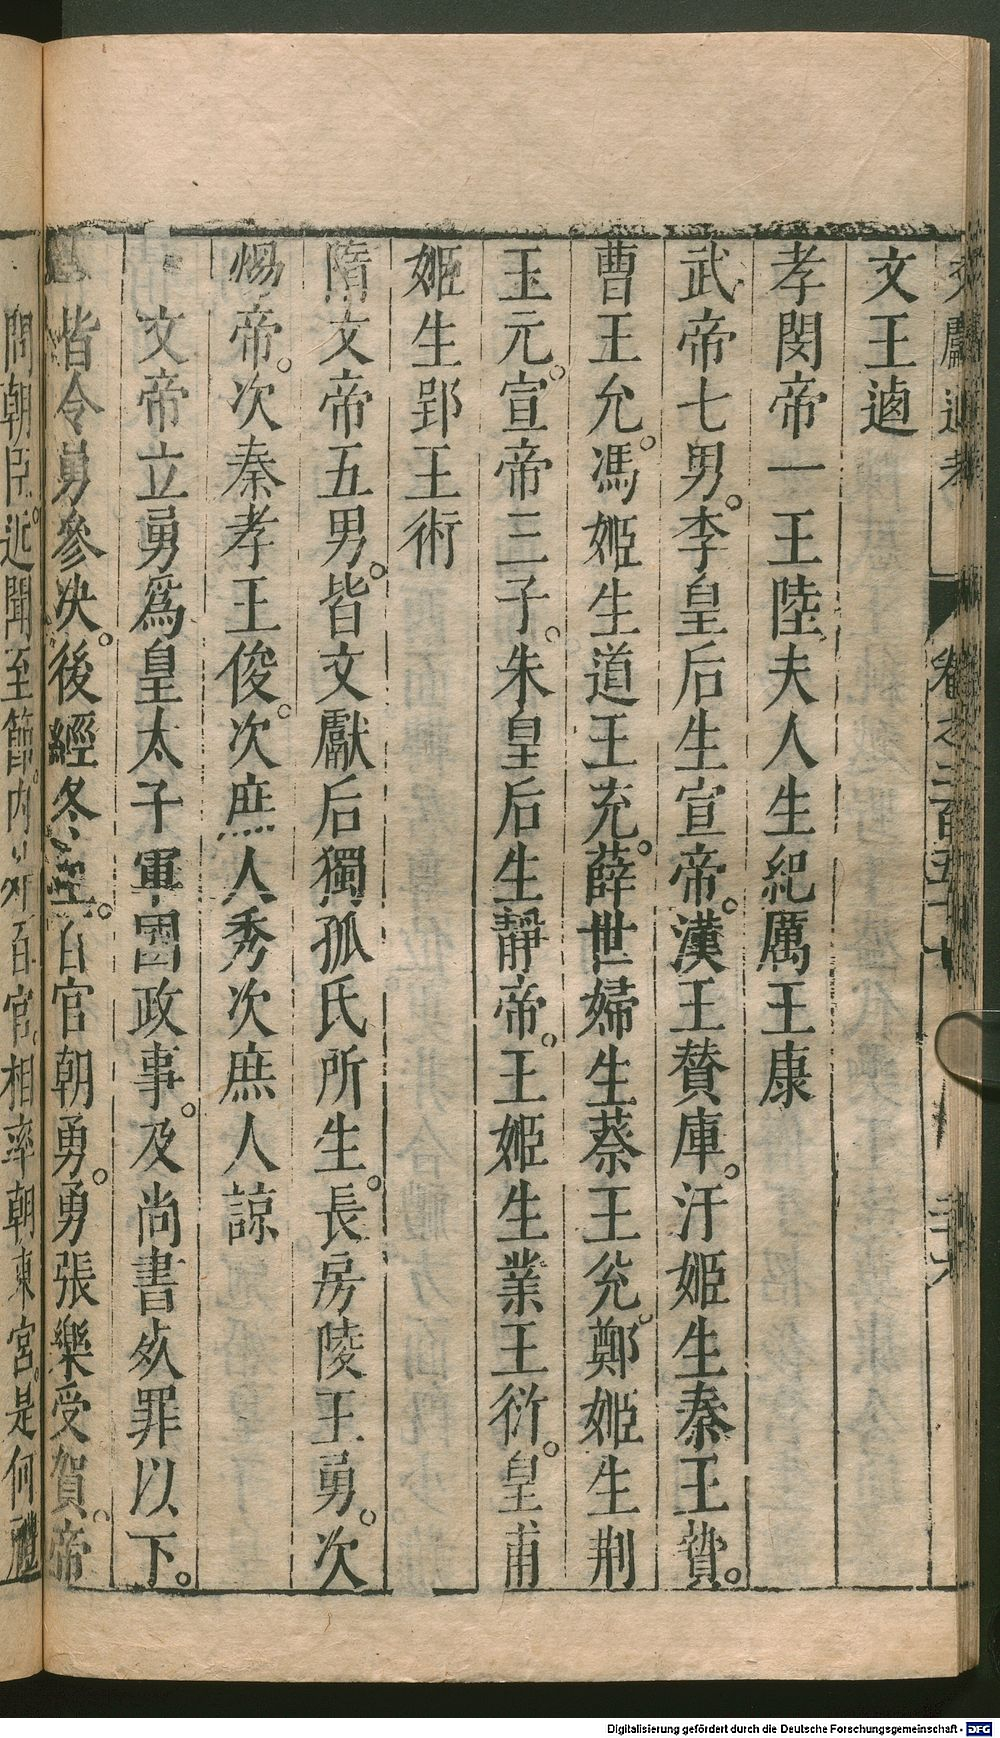 文獻通考 卷之二百五十 二十六
文王逌
孝閔帝一王陸夫人生紀厲王康
武帝七男。李皇后生宣帝。漢王賛庫。汙姬生秦王贄。
曹王允。馮姬生道王充。薛世婦生蔡王兊。鄭姬生荆
王元。宣帝三子。朱皇后生靜帝。王姬生業王衍。皇甫
姬生郢王術
隋文帝五男。皆文獻后獨孤氏所生。長房陵王勇。次
煬帝。次秦孝王俊。次庶人秀次庶人諒
文帝立勇爲皇太子軍國政事。及尚書奏罪以下。
皆令勇參决。後經冬至。百官朝勇。勇張樂受賀。帝
問朝臣。近聞至節。內外百官。相率朝東宮。是何禮
Digitalisierung gefördert durch die Deutsche Forschungsgemeinschaft - DFG